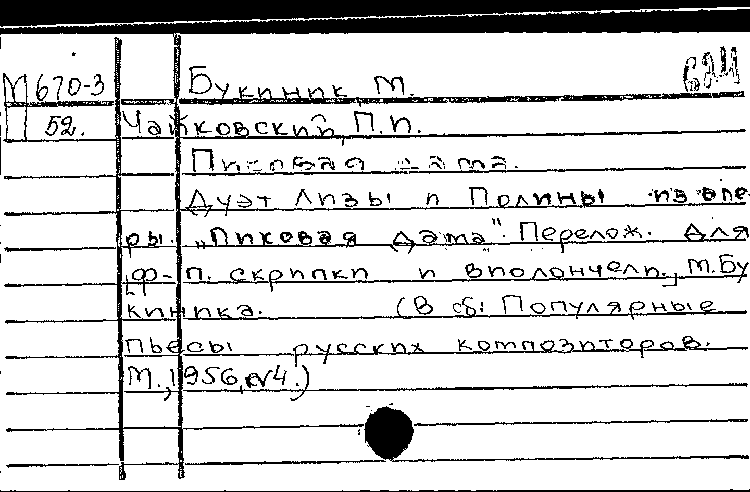 М670-3 Букиник, М.
52. Чайковский, П.П.
Пиковая дама.
Дуэт Лизы и Полины из опе
ры „Пиковая дама". Перелож. для
ф-п. скрипки и виолончели. М.Бу
киника. (В сб: Популярные
пьесы русских композиторов.
М., 1956, №4.)